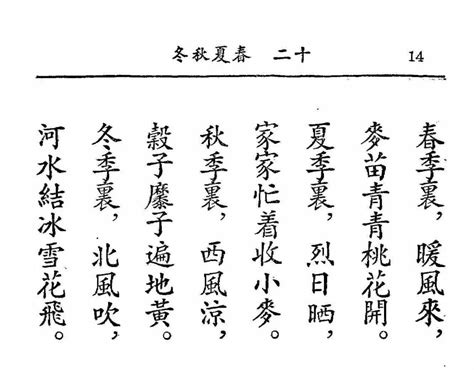 十二 春夏秋冬
14
春季裏，暖風來，
麥苗青青桃花開。
夏季裏，烈日晒，
家家忙着收小麥。
秋季裏，西風涼，
穀子糜子遍地黃。
冬季裏，北風吹，
河水結冰雪花飛。